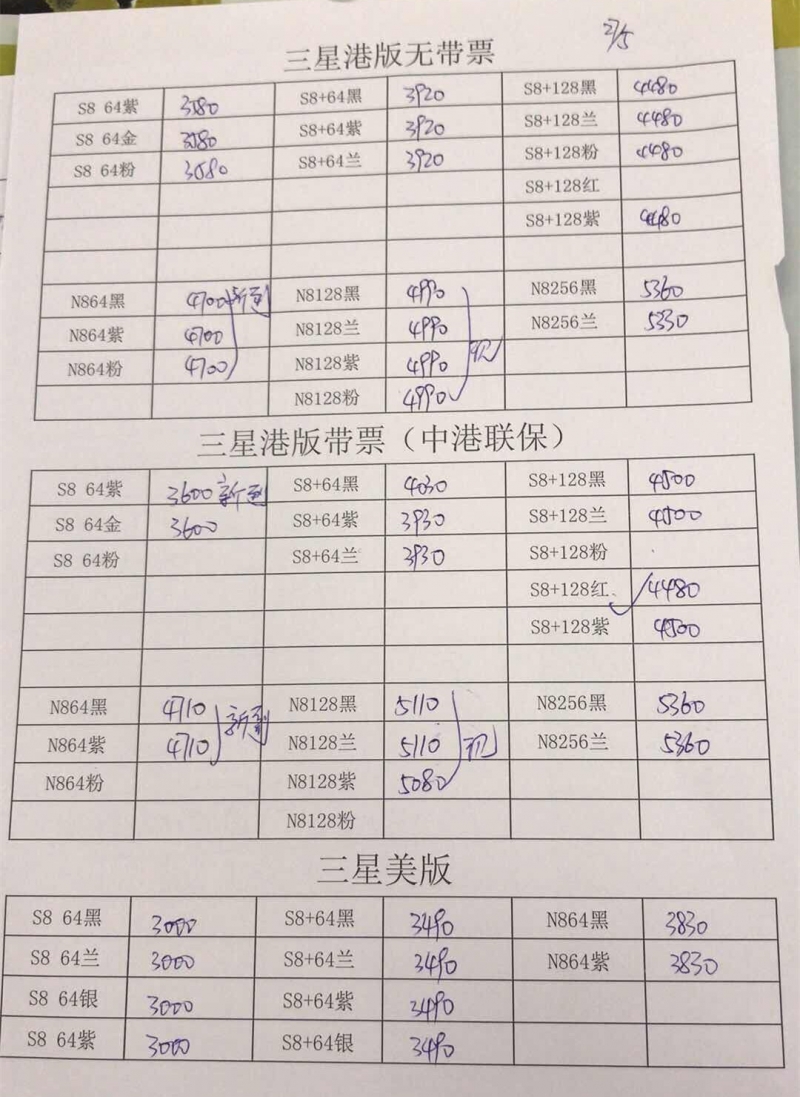 三星港版无带票 2/5
S8 64紫 3580 S8+64黑 3920 S8+128黑 4480
S8 64金 3580 S8+64紫 3920 S8+128兰 4480
S8 64粉 3580 S8+64兰 3920 S8+128粉 4480
S8+128红
S8+128紫 4480
N864黑 4700 新到 N8128黑 4990 N8256黑 5360
N864紫 4700 N8128兰 4990 N8256兰 5330
N864粉 4700 N8128紫 4990
N8128粉 4990
三星港版带票（中港联保）
S8 64紫 3600 新到 S8+64黑 4030 S8+128黑 4500
S8 64金 3600 S8+64紫 3930 S8+128兰 4500
S8 64粉 S8+64兰 3930 S8+128粉
S8+128红 4480
S8+128紫 4500
N864黑 4710 新到 N8128黑 5110 N8256黑 5360
N864紫 4710 N8128兰 5110 N8256兰 5360
N864粉 N8128紫 5080
N8128粉
三星美版
S8 64黑 3000 S8+64黑 3490 N864黑 3830
S8 64兰 3000 S8+64兰 3490 N864紫 3830
S8 64银 3000 S8+64紫 3490
S8 64紫 3000 S8+64银 3490